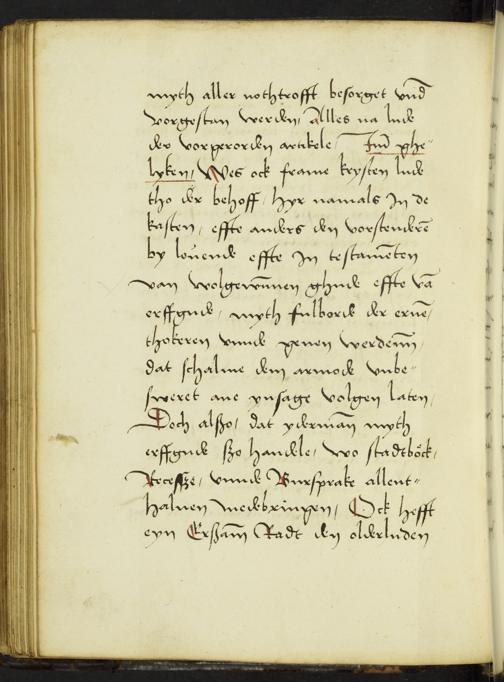 myth aller nothtrofft besorget vnd̄
vorgestan werden, Alles na lude
der vorperorden artikele, Jnd̄ ghe-
lyken, Wes ock frame krysten lude
tho der behoff, hyr namals In de
kasten, effte anders den vorstenderē
by leuende effte In testamēten
van wolgewūnen ghude effte vā
erffgude, myth fulborde der eruē,
thokeren vnnde geuen werdenn̄,
dat schalme dem armode vnbe-
sweret ane ynsage volgen laten,
Doch alßo, dat yderman̄ myth
erffgude ßo handele, wo stadtböck,
Recesße, vnnde Bursprake allent-
haluen medebringen, Ock hefft
eyn Erßam̄ Radt den olderluden